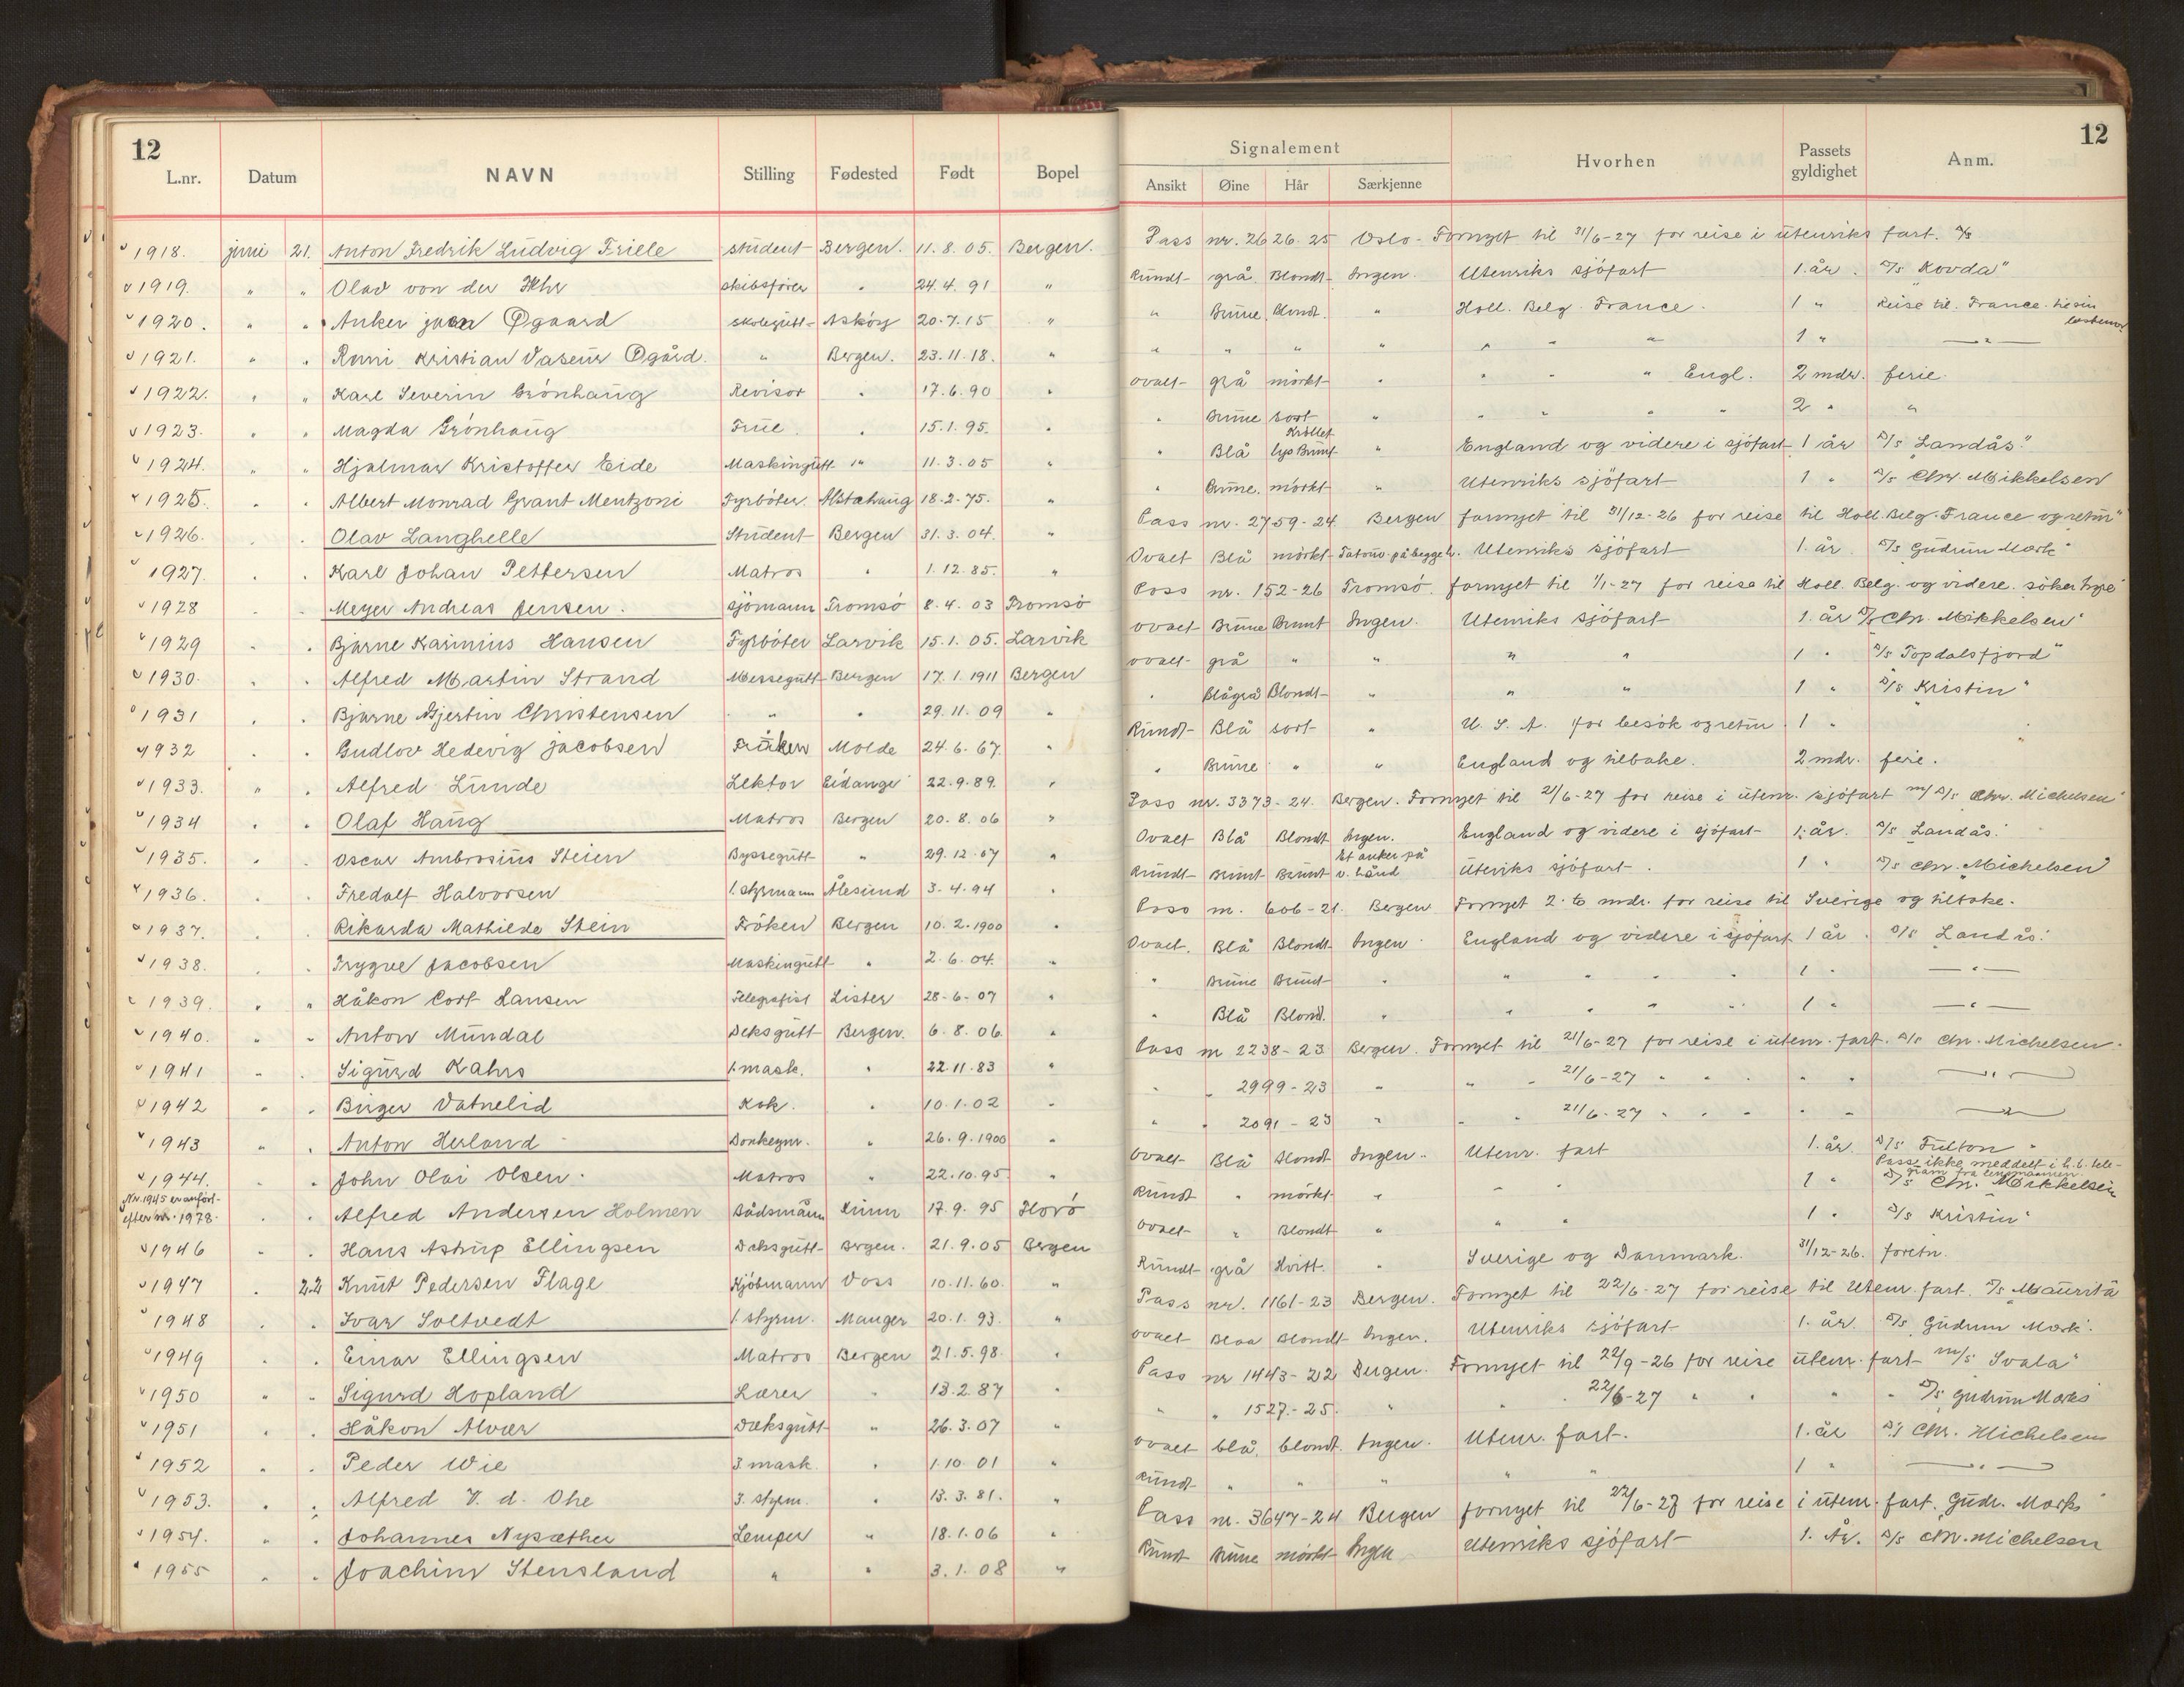 12
L.nr. Datum NAVN Stilling Fødested Født Bopel
1918. juni 21. Anton Fredrik Ludvig Friele student Bergen. 11.8.05. Bergen.
1919. " " Olav von der skibsfører " 24.4.91 "
1920. " " Anker Øgaard skolegutt Askøy 20.7.15 "
1921. " Kristian Øgård. " Bergen. 23.11.18. "
1922. " " Karl Severin Grönhaug Revisor " 17.6.90 "
1923. " " Magda Grönhaug Frue " 15.1.95. "
1924. " " Hjalmar Kristoffer Eide Maskingutt " 11.3.05 "
1925. " " Albert Monrad Grant Mentzoni Fyrböter Alstahaug 18.2.75. "
1926. " " Olav Langhelle Student Bergen 31.3.04. "
1927. " " Karl Johan Pettersen Matros " 1.12.85. "
1928 " " Meyer Andreas Jensen. sjömann Tromsö 8.4.03 Tromsö
1929 " " Bjarne Kasinius Hansen Fyrböter Larvik 15.1.05. Larvik
1930. " " Alfred Martin Strand Messegutt Bergen 17.1.1911 Bergen
1931 " " Bjarne Christensen " " 29.11.09 "
1932 " " Gudlov Hedevig Jacobsen Fröken Molde 24.6.67. "
1933. " " Alfred Lunde Lektor Eidanger 22.9.89. "
1934 " " Olaf Haug Matros Bergen 20.8.06 "
1935. " " Oscar Ambrosius Steien Byssegutt " 29.12.07 "
1936. " " Fredolf Halvorsen 1. styrmann Ålesund 3.4.94 "
1937. " " Rikarda Mathilde Stein Fröken Bergen 10.2.1900 "
1938. " " Trygve Jacobsen Maskingutt " 2.6.04. "
1939. " " Håkon Cort Hansen Telegrafist Lister 28.6.07 "
1940. " " Anton Mundal Deksgutt Bergen. 6.8.06. "
1941 " " Sigurd Kahrs 1. mask. " 22.11.83 "
1942 " " Birger Vatnelid Kok. " 10.1.02 "
1943 " " Anton Herland Donkeym. " 26.9.1900 "
1944. " " John Olai Olsen. Matros " 22.10.95 "
Nr. 1945 er anfört
efter nr. 1978. " " Alfred Andersen Holmen Bådsmann Kinn 17.9.95 Florö
1946 " " Hans Astrup Ellingsen Deksgutt Bergen. 21.9.05 Bergen
1947 " 22 Knut Pedersen Flage Kjöbmann Voss 10.11.60. "
1948 " " Ivar Soltvedt 1. styrm. Manger 20.1.93. "
1949 " " Einar Ellingsen Matros Bergen 21.5.98. "
1950 " " Sigurd Hopland Lærer " 13.2.87 "
1951 " " Håkon Alvær Dæksgutt " 26.3.07 "
1952 " " Peder Wie 3 mask. " 1.10.01 "
1953. " " Alfred V. d. Ohe 3. styrm. " 13.3.81. "
1954. " " Johannes Nysæther Lemper " 18.1.06 "
1955 " " Joachim Stensland " " 3.1.08 "
12
Signalement Hvorhen Passets gyldighet Anm.
Ansikt Øine Hår Særkjenne
Pass nr. 2626-25 Oslo. Fornyet til 21/6-27 for reise i utenriks fart.
Rundt grå Blondt Ingen. Utenriks sjöfart 1. år. D/s Kovda"
" Brune Blondt. " Holl. Belg. France. 1 " Reise til France
" " " " " " " 1 " "
ovalt grå mörkt " " " " Engl. 2 mdr. ferie.
" Brune sort " " " " " 2 " "
" Blå Krøllet lys Brunt " England og videre i sjöfart 1 år D/s "Landås"
" Brune. mörkt " Utenriks sjöfart 1 " D/s Chr. Mikkelsen
Pass nr. 2759-24 Bergen fornyet til 31/12-26 for reise til Holl. Belg. France og retur"
Ovalt Blå mörkt Tatouv. på begge h. Utenriks sjöfart 1. år. D/s Gudrun Mærk"
Pass nr. 152-26 Tromsö. fornyet til 1/1-27 for reise til Holl. Belg. og videre. söker hyre
ovalt Brune Brunt Ingen. Utenriks sjöfart 1. år D/s Chr. Mikkelsen"
ovalt grå " " " " 1 " D/s "Topdalsfjord"
" Blågrå Blondt " " " 1 " D/s "Kristin"
Rundt Blå sort " U. S. A. for besök og retur. 1 " "
" Brune " " England og tilbake. 2 mdr. ferie.
Pass nr. 3373-24. Bergen. Fornyet til 21/6-27 for reise i utenr. sjöfart m/ D/s Chr. Michelsen"
Ovalt Blå Blondt Ingen. England og videre i sjöfart 1. år. D/s Landås.
Rundt Brunt Brunt Et anker på v. hånd Utenriks sjöfart. 1 " D/s Chr. Michelsen"
Pass nr. 606-21. Bergen Fornyet 2. mdr. for reise til Sverige og tilbake.
Ovalt. Blå Blondt Ingen England og videre i sjöfart 1 år. D/s "Landås".
" Brune Brunt " " " " " 1 " "
" Blå Blond. " " " " " 1 " "
Pass nr 2238-23 Bergen. Fornyet til 21/6-27 for reise i utenr. fart. D/s Chr. Michelsen.
" " 2999-23 " " " 21/6-27 " " " " " "
" " 2091-23 " " " 21/6-27 " " " " " "
Ovalt Blå Blondt Ingen. Utenr. fart 1. år. D/s Fulton "
Pass ikke meddelt i h. t. tele-
gram fra lensmannen.
Rundt " mörkt " " " 1 " D/s Chr. Mikkelsen
Ovalt " Blondt " " " 1 " D/s Kristin"
Rundt grå Hvitt. " Sverige og Danmark. 31/12-26. foretn.
Pass nr. 1161-23 Bergen. Fornyet til 22/6-27 for reise til utenr. fart. D/s Maurita
ovalt Blaa Blondt Ingen. Utenriks sjöfart 1. år. D/s Gudrun Mærk".
Pass nr 1443-22 Bergen. Fornyet til 22/9-26 for reise utenr. fart m/s Svala"
" " 1527-25. " " 22/6-27 " " " " D/s Gudrun Mærks
ovalt blå. blondt. Ingen. Utenr. fart. 1. år D/s Chr. Michelsen
Rundt " " " " " 1 " "
Pass nr. 3647-24 Bergen fornyet til 22/6-27 for reise i utenr. fart. Gudr. Mærks"
Rundt Brune mörkt Ingen Utenriks sjöfart 1. År. D/s Chr. Michelsen